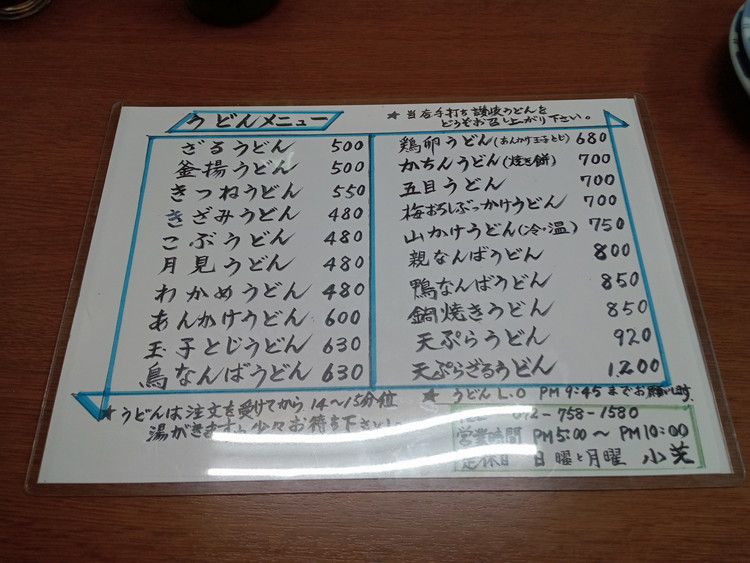 うどんメニュー
★当店手打ち讃岐うどんを
どうぞお召し上がり下さい。
ざるうどん 500
釜揚うどん 500
きつねうどん 550
きざみうどん 480
こぶうどん 480
月見うどん 480
わかめうどん 480
あんかけうどん 600
玉子とじうどん 630
鳥なんばうどん 630
鶏卵うどん(あんかけ玉子とじ) 680
かちんうどん(焼き餅) 700
五目うどん 700
梅おろしぶっかけうどん 700
山かけうどん(冷・温) 750
親なんばうどん 800
鴨なんばうどん 850
鍋焼きうどん 850
天ぷらうどん 920
天ぷらざるうどん 1,200
★うどんは注文を受けてから14〜15分位
湯がきますので少々お待ち下さい。
★うどんL.O PM9:45までお願いします。
072-758-1580
営業時間 PM5:00〜PM10:00
定休日 日曜と月曜 小芝